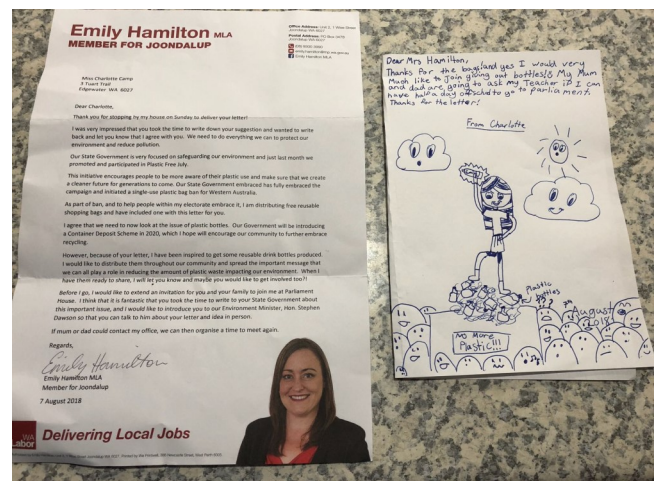 Emily Hamilton MLA
MEMBER FOR JOONDALUP
Miss Charlotte Camp
3 Tuart Trail
Edgewater WA 6027
Dear Charlotte,
Thank you for stopping by my house on Sunday to deliver your letter!
I was very impressed that you took the time to write down your suggestion and wanted to write
back and let you know that I agree with you. We need to do everything we can to protect our
environment and reduce pollution.
Our State Government is very focused on safeguarding our environment and just last month we
promoted and participated in Plastic Free July.
This initiative encourages people to be more aware of their plastic use and make sure that we create
a cleaner future for generations to come. Our State Government embraced has fully embraced the
campaign and initiated a single-use plastic bag ban for Western Australia.
As part of ban, and to help people within my electorate embrace it, I am distributing free reusable
shopping bags and have included one with this letter for you.
I agree that we need to now look at the issue of plastic bottles. Our Government will be introducing
a Container Deposit Scheme in 2020, which I hope will encourage our community to further embrace
recycling.
However, because of your letter, I have been inspired to get some reusable drink bottles produced.
I would like to distribute them throughout our community and spread the important message that
we can all play a role in reducing the amount of plastic waste impacting our environment. When I
have them ready to share, I will let you know and maybe you would like to get involved too?!
Before I go, I would like to extend an invitation for you and your family to join me at Parliament
House. I think that it is fantastic that you took the time to write to your State Government about
this important issue, and I would like to introduce you to our Environment Minister, Hon. Stephen
Dawson so that you can talk to him about your letter and idea in person.
If mum or dad could contact my office, we can then organise a time to meet again.
Regards,
Emily Hamilton
Emily Hamilton MLA
Member for Joondalup
7 August 2018
WA
Labor
Delivering Local Jobs
Office Address:
Postal Address:
Joondalup WA 6027
Emily Hamilton MLA
Dear Mrs Hamilton,
Thanks for the bags, and yes I would very
Much like to join giving out bottles!! My Mum
and dad are going to ask my Teacher if I can
have half a day off school to go to parliament.
Thanks for the letter!
From Charlotte
Plastic
Bottles
7th August
2018
No More
Plastic!!!